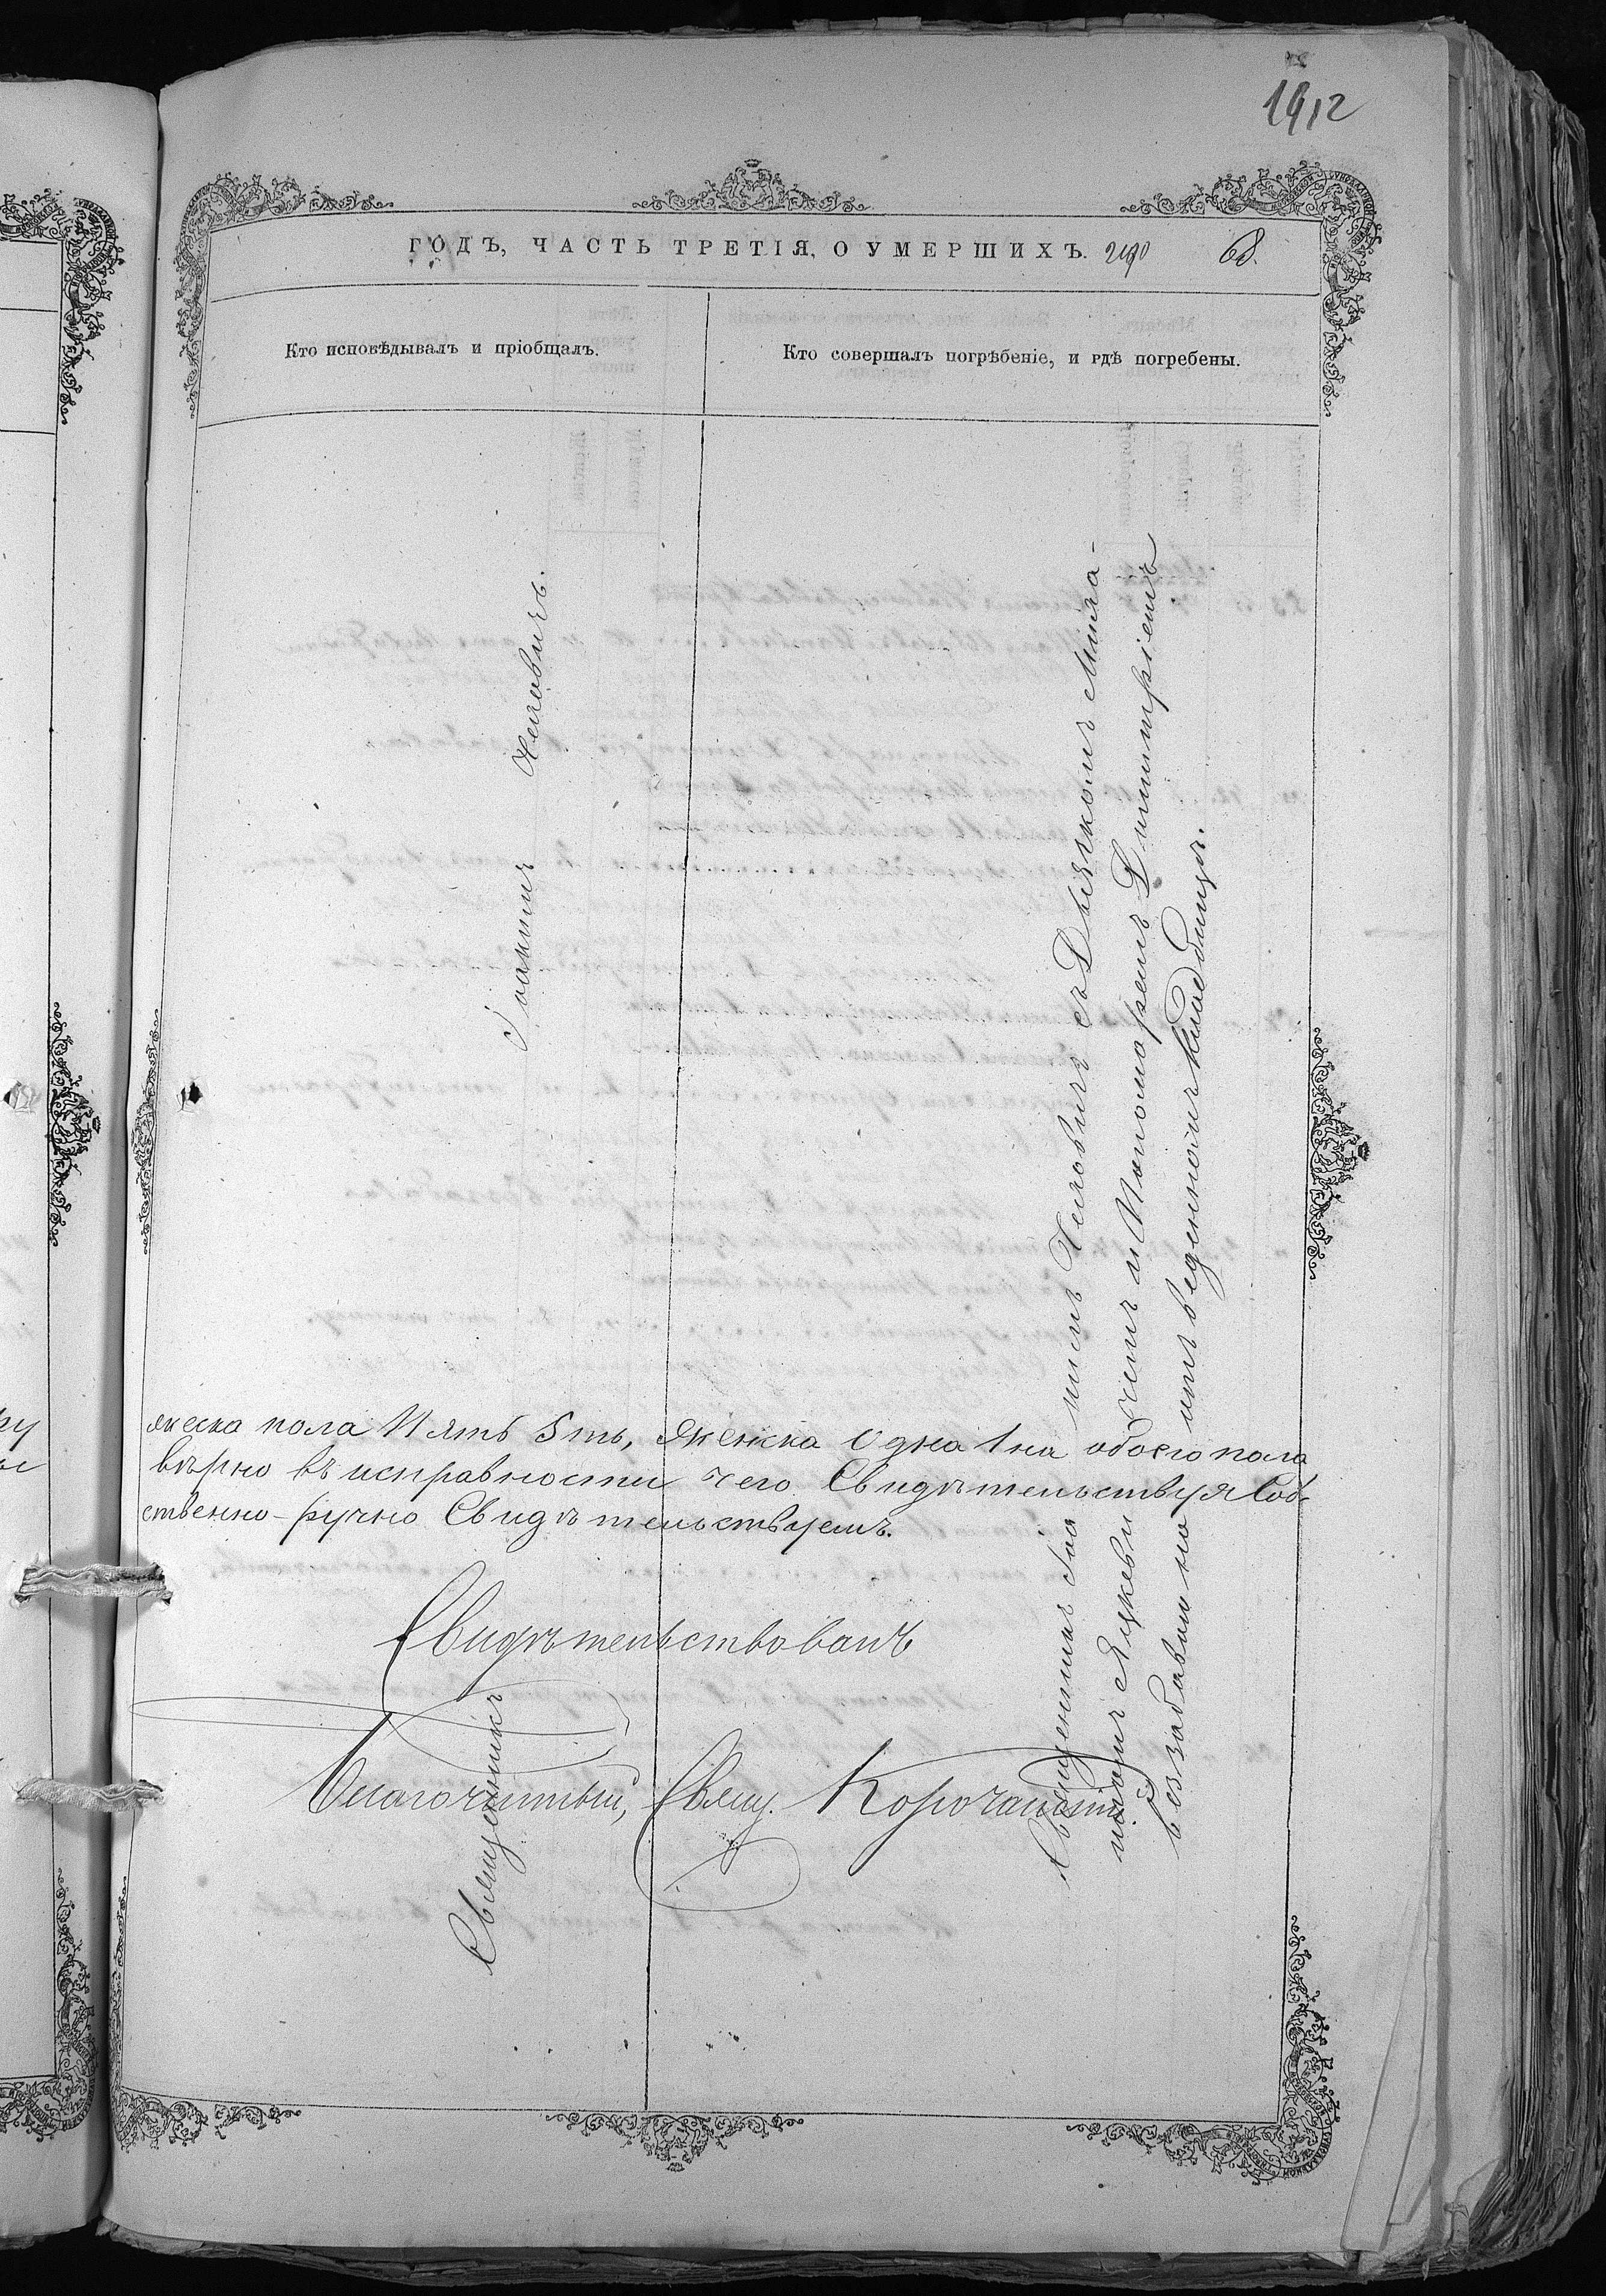 1912
ГОДЪ, ЧАСТЬ ТРЕТІЯ, О УМЕРШИХЪ. 68.
Кто исповѣдывалъ и пріобщалъ.
Кто совершалъ погрѣбеніе, и гдѣ погребены.
Священникъ Іоаннъ
Священникъ Іоа нномъ съ Дьякономъ Миха-
иломъ Яцкеви чемъ и Пономаремъ Димитріемъ
Беззабавы на отведенномъ кладбищѣ.
жеска пола Пять 5ть, женска одна 1на обоего пола
вѣрно въ исправности чего Свидѣтельствуя Соб-
ственно-ручно Свидѣтельствуемъ.
Свидѣтельствовалъ
Благочинный, Свящ.